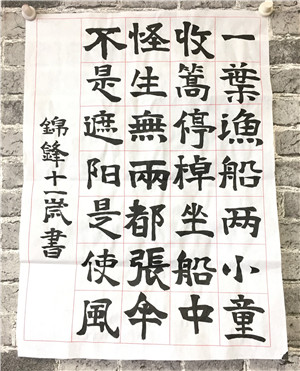 一葉漁船两小童
收篙停棹坐船中
怪生無兩都張伞
不是遮阳是使風
錦鋒十一歲書